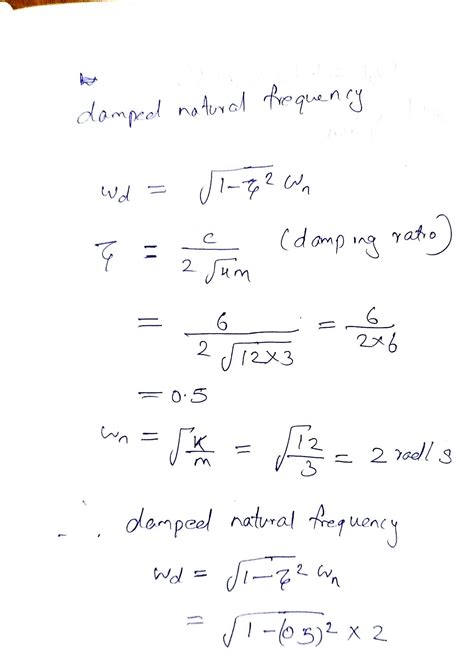 damped natural frequency
ωd = √(1-ζ²) ωn
ζ = c / 2√km (damping ratio)
= 6 / 2√12×3 = 6 / 2×6
= 0.5
ωn = √K/m = √12/3 = 2 rad/s
∴ damped natural frequency
ωd = √(1-ζ²) ωn
= √(1-(0.5)²) × 2